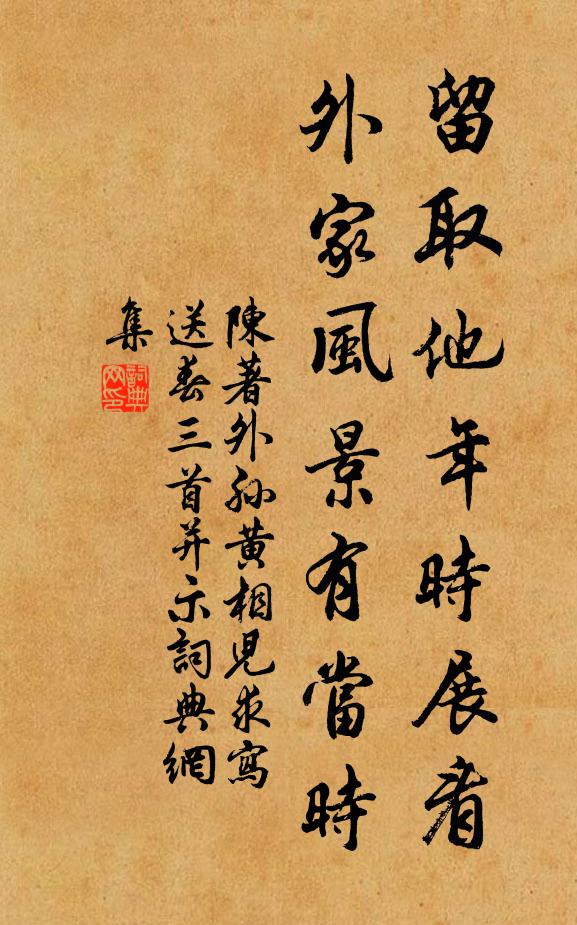 留取他年時展看
外家風景有當時
陳著外孫黃相児求寫
送春三首并示詞典網
集
詞典網印